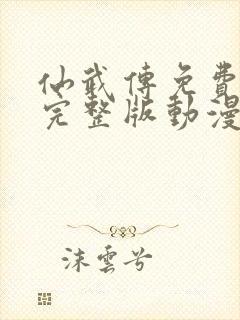 仙武傳免費
完整版動漫
沫雲兮